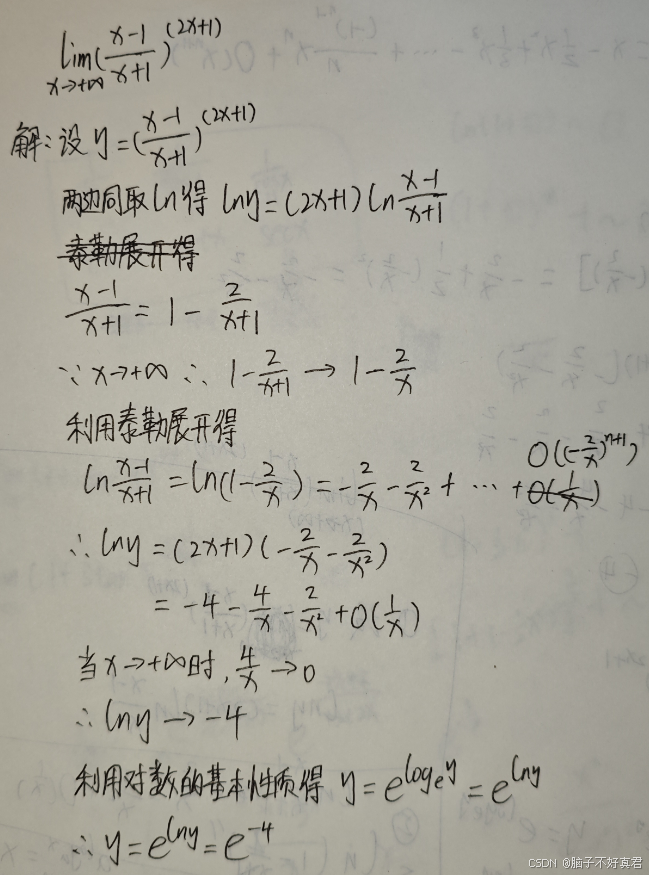 lim x→+∞ (x-1/x+1)^(2x+1)
解:设 y=(x-1/x+1)^(2x+1)
两边同取ln得 lny=(2x+1)ln x-1/x+1
泰勒展开得
x-1/x+1 = 1 - 2/x+1
∵ x→+∞ ∴ 1-2/x+1 → 1-2/x
利用泰勒展开得
ln x-1/x+1 = ln(1-2/x) = -2/x - 2/x² + … + O(1/x) O((-2/x)^n+1)
∴ lny=(2x+1)(-2/x-2/x²)
= -4 - 4/x - 2/x² + O(1/x)
当x→+∞时, 4/x→0
∴ lny→-4
利用对数的基本性质得 y=e^log_e y=e^lny
∴ y=e^lny=e^-4
CSDN @脑子不好真君